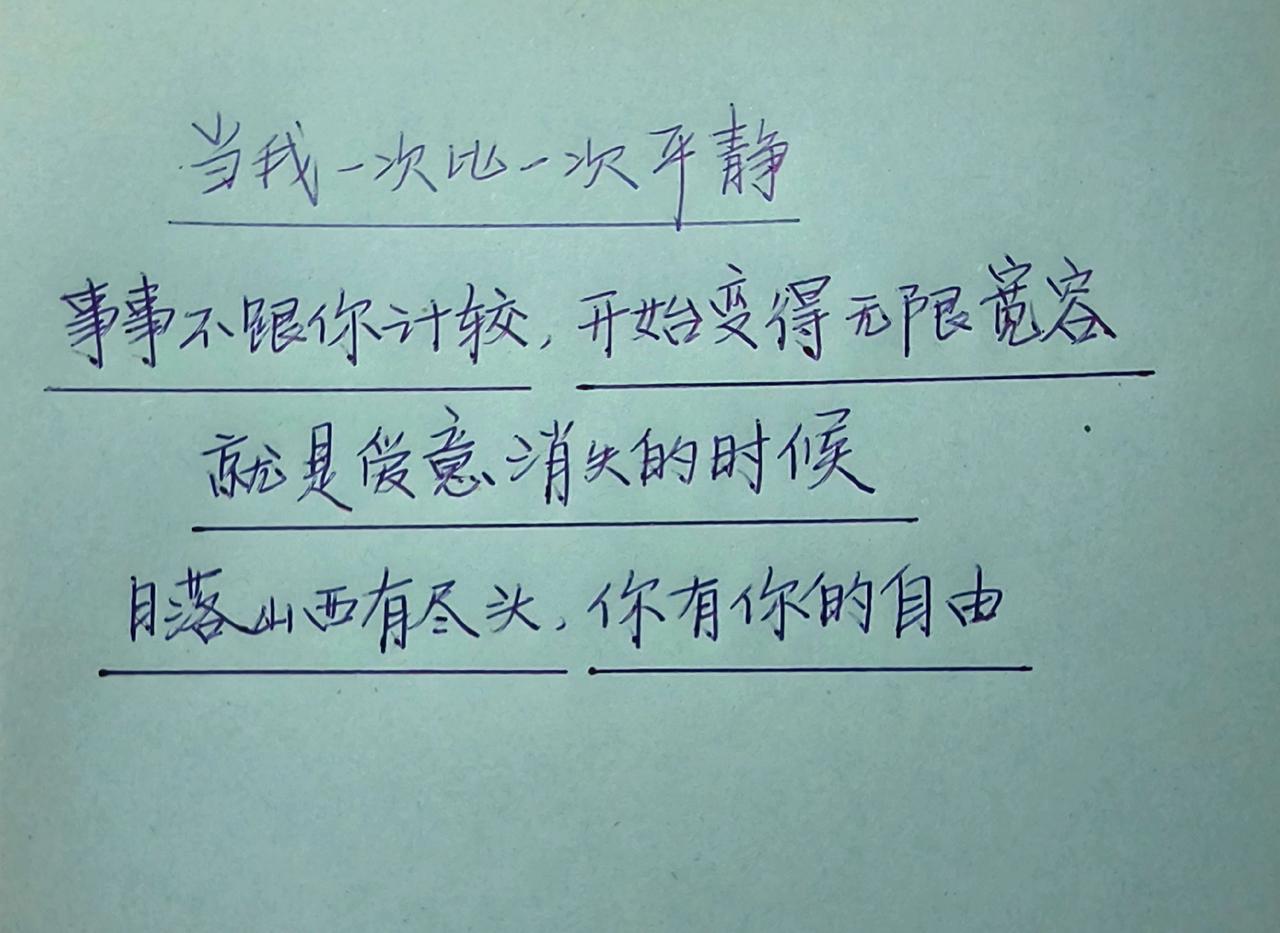 当我一次比一次平静
事事不跟你计较，开始变得无限宽容
就是爱意消失的时候
日落山西有尽头，你有你的自由